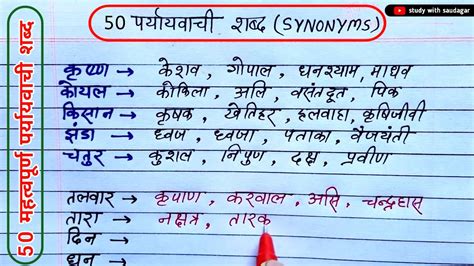 50 पर्यायवाची शब्द (SYNONYMS)
study with saudagar
50 महत्वपूर्ण पर्यायवाची शब्द
कृष्ण → केशव, गोपाल, घनश्याम, माधव
कोयल → कोकिला, अलि, वसंतदूत, पिक
किसान → कृषक, खेतिहर, हलवाहा, कृषिजीवी
झंडा → ध्वज, ध्वजा, पताका, वैजयंती
चतुर → कुशल, निपुण, दक्ष, प्रवीण
तलवार → कृपाण, करवाल, असि, चन्द्रहास
तारा → नक्षत्र, तारक
दिन →
धन →